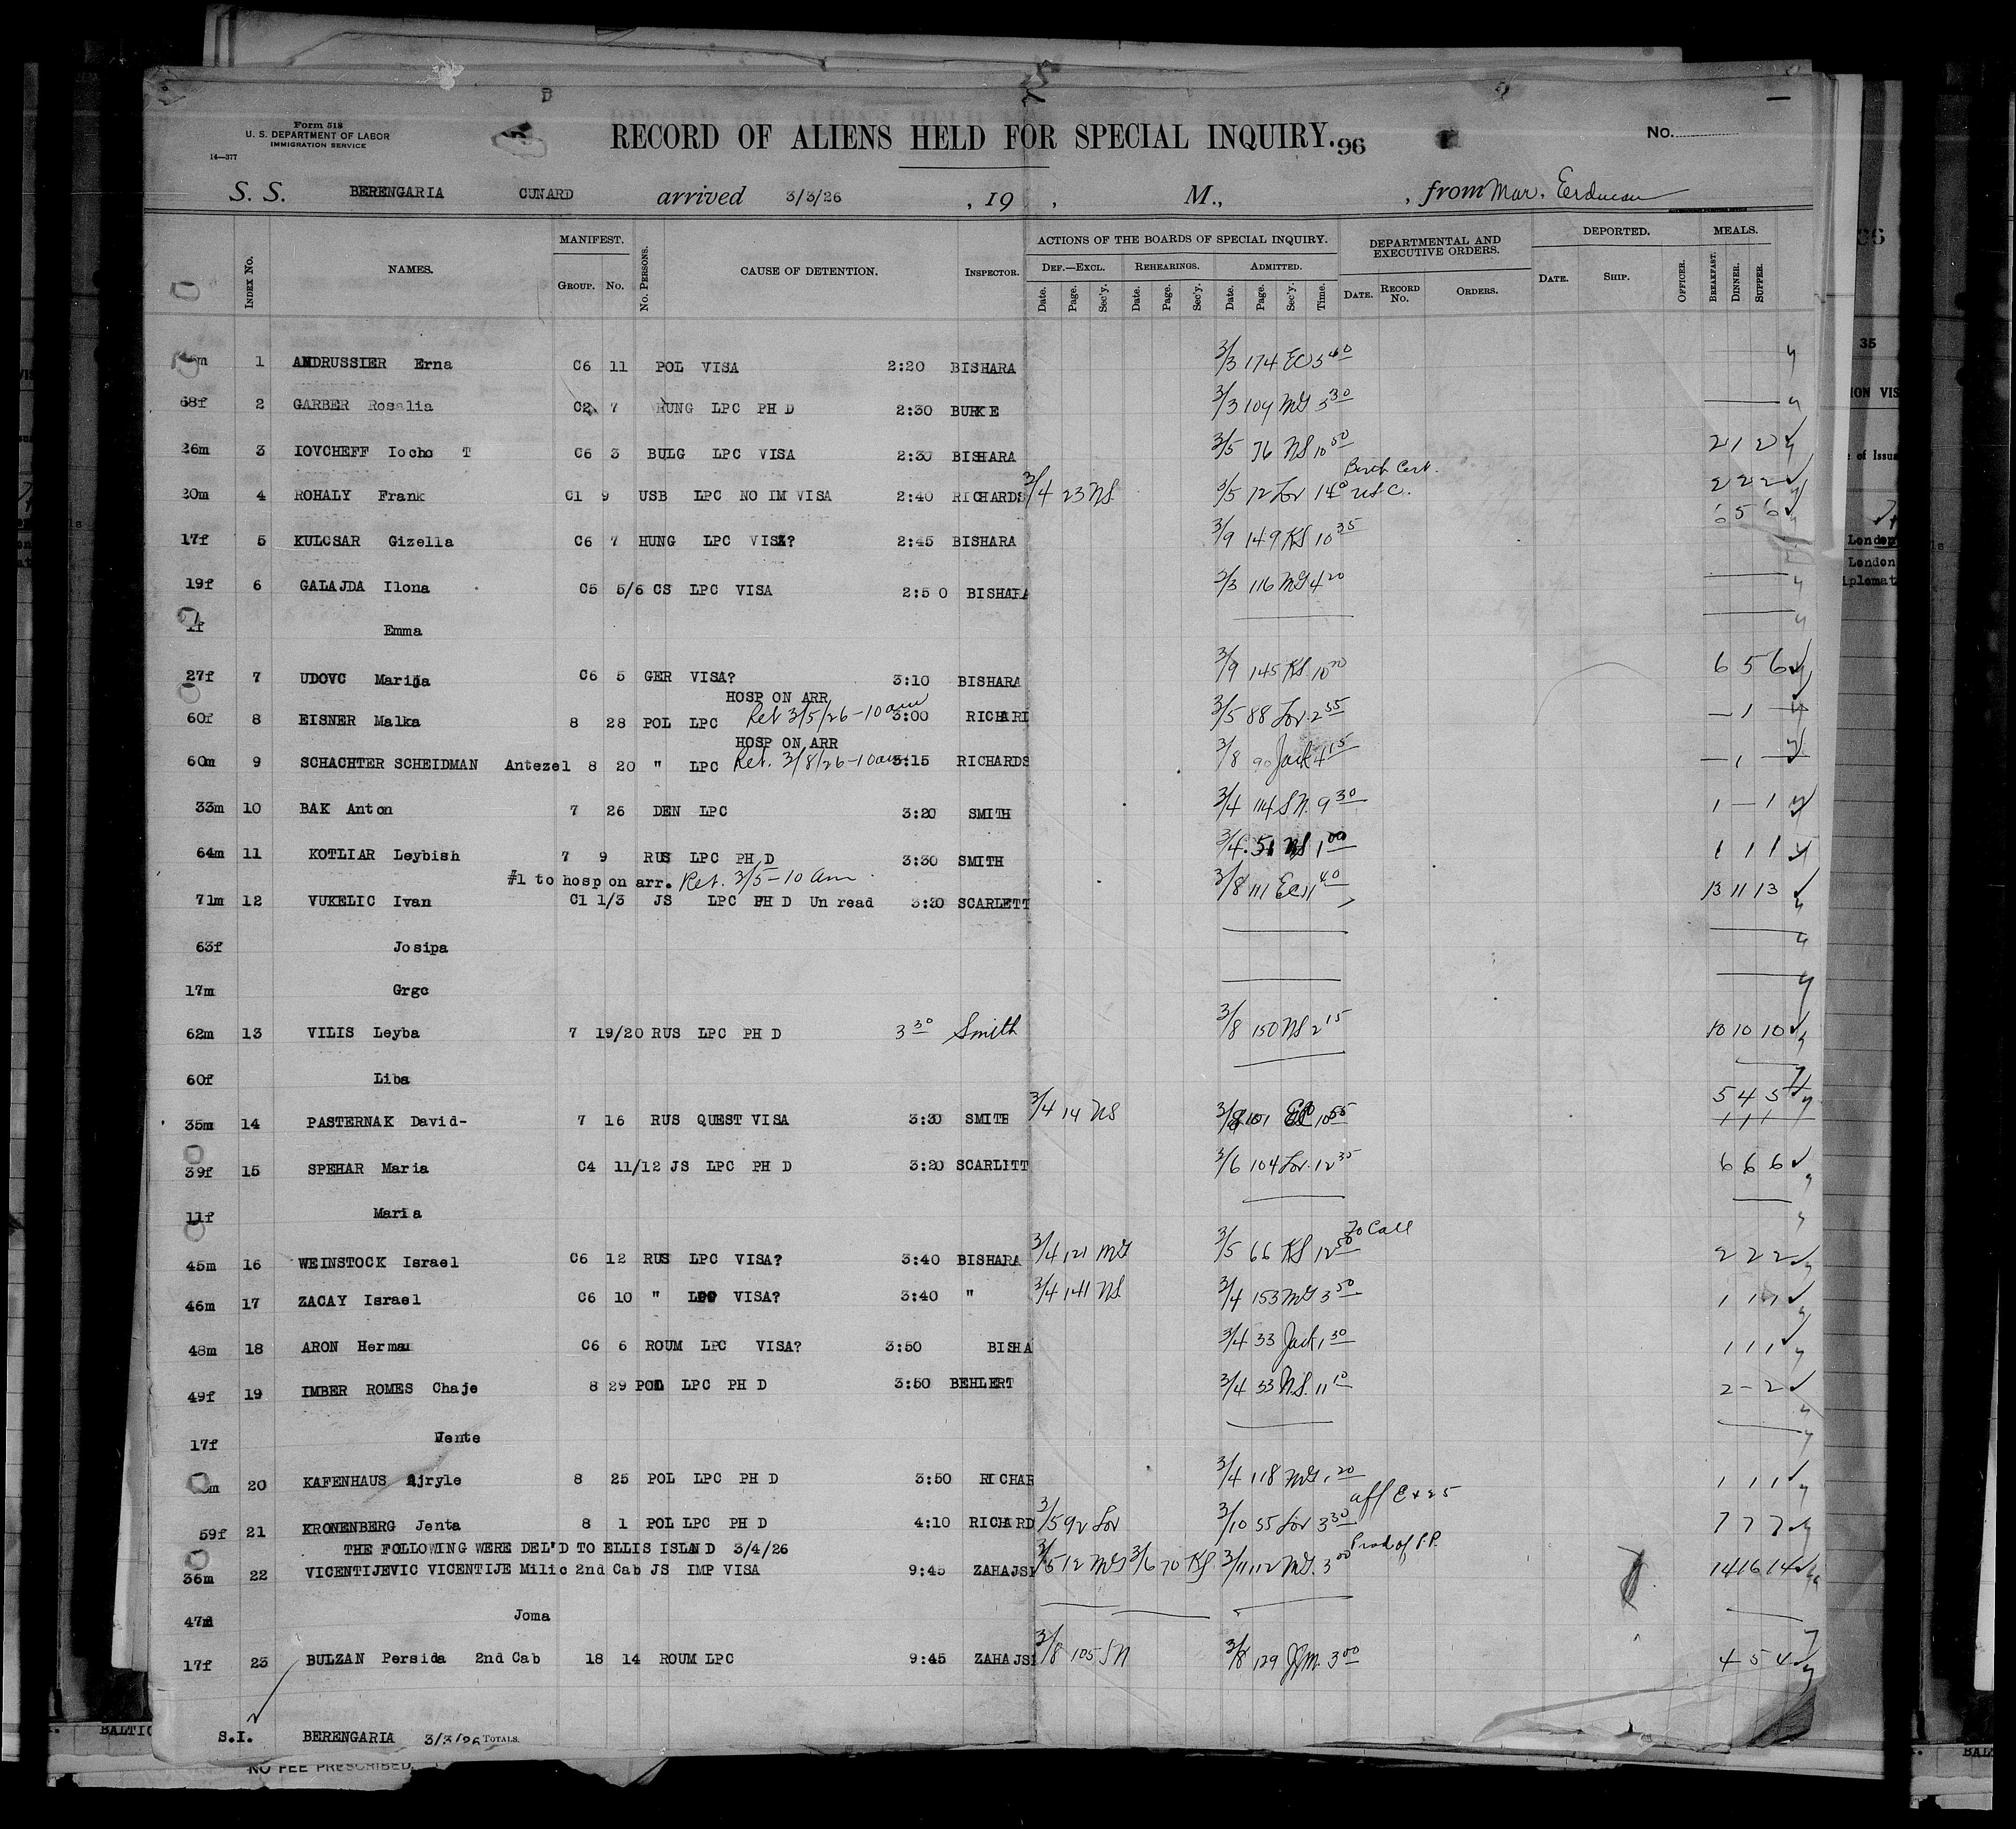 Form 518
U. S. DEPARTMENT OF LABOR
IMMIGRATION SERVICE
14—377
RECORD OF ALIENS HELD FOR SPECIAL INQUIRY. 96
No.
S. S. BERENGARIA CUNARD arrived 3/3/26 , 19 , M., , from Mar.
INDEX NO. NAMES. MANIFEST. GROUP. NO. NO. PERSONS. CAUSE OF DETENTION. INSPECTOR. ACTIONS OF THE BOARDS OF SPECIAL INQUIRY. DEPARTMENTAL AND EXECUTIVE ORDERS. DEPORTED. MEALS.
DEF.—EXCL. REHEARINGS. ADMITTED.
Date. Page. Sec'y. Date. Page. Sec'y. Date. Page. Sec'y. Time. DATE. RECORD NO. ORDERS. DATE. SHIP. OFFICER. BREAKFAST. DINNER. SUPPER.
1 ANDRUSSIER Erna C6 11 POL VISA 2:20 BISHARA 3/3 174 EC 3 40
68f 2 GARBER Rosalia C2 7 HUNG LPC PH D 2:30 BURKE 3/3 109 MG 3 30
26m 3 IOVCHEFF Iocho T C6 3 BULG LPC VISA 2:30 BISHARA 3/5 76 NS 10 50 2 1 2
20m 4 ROHALY Frank C1 9 USB LPC NO IM VISA 2:40 RICHARDS 3/4 23 NS 3/5 12 Lor 1 40 Birth Cert. USC. 2 2 2
17f 5 KULCSAR Gizella C6 7 HUNG LPC VISA? 2:45 BISHARA 3/9 149 KS 10 35 6 5 6
19f 6 GALAJDA Ilona C5 5/6 CS LPC VISA 2:50 BISHARA 3/3 116 MG 4 20
1f Emma
27f 7 UDOVC Marija C6 5 GER VISA? 3:10 BISHARA 3/9 145 KS 10 20 6 5 6
HOSP ON ARR
60f 8 EISNER Malka 8 28 POL LPC Ret 3/5/26-10am 3:00 RICHARD 3/5 88 Lor 2 55 — 1 —
HOSP ON ARR
60m 9 SCHACHTER SCHEIDMAN Antezel 8 20 " LPC Ret. 3/8/26-10am 3:15 RICHARDS 3/8 90 Jack 4 15 — 1 —
33m 10 BAK Anton 7 26 DEN LPC 3:20 SMITH 3/4 114 SN. 9 30 1 — 1
64m 11 KOTLIAR Leybish 7 9 RUS LPC PH D 3:30 SMITH 3/4 51 NS 1 00 1 1 1
#1 to hosp on arr. Ret. 3/5-10 am
71m 12 VUKELIC Ivan C1 1/3 JS LPC PH D Un read 3:30 SCARLETT 3/8 111 EC 11 40 13 11 13
63f Josipa
17m Grgo
62m 13 VILIS Leyba 7 19/20 RUS LPC PH D 3 30 Smith 3/8 150 NS 2 15 10 10 10
60f Liba
35m 14 PASTERNAK David- 7 16 RUS QUEST VISA 3:30 SMITH 3/4 14 NS 101 10 55 5 4 5
1 1 1
39f 15 SPEHAR Maria C4 11/12 JS LPC PH D 3:20 SCARLITT 3/6 104 Lor. 12 35 6 6 6
11f Maria
45m 16 WEINSTOCK Israel C6 12 RUS LPC VISA? 3:40 BISHARA 3/4 121 MG 3/5 66 KS 12 50 To Call 2 2 2
46m 17 ZACAY Israel C6 10 " LPC VISA? 3:40 " 3/4 141 NS 3/4 153 MG 3 50 1 1 1
48m 18 ARON Herman C6 6 ROUM LPC VISA? 3:50 BISHA 3/4 33 Jack 1 30 1 1 1
49f 19 IMBER ROMES Chaje 8 29 POL LPC PH D 3:50 BEHLERT 3/4 33 N.S. 11 10 2 - 2
17f Jente
20 KAFENHAUS Ajryle 8 25 POL LPC PH D 3:50 RICHAR 3/4 118 MG 1 20 1 1 1
59f 21 KRONENBERG Jenta 8 1 POL LPC PH D 4:10 RICHARD 3/5 92 Lor 3/10 55 Lor 3 30 aff Ex 25 7 7 7
THE FOLLOWING WERE DEL'D TO ELLIS ISLAND 3/4/26
36m 22 VICENTIJEVIC VICENTIJE Milic 2nd Cab JS IMP VISA 9:45 ZAHAJSI 3/5 12 MG 3/6 70 KS. 3/11 112 MG. 3 00 Prod of P.P. 14 16 14
47m Joma
17f 23 BULZAN Persida 2nd Cab 18 14 ROUM LPC 9:45 ZAHAJSI 3/8 105 SN 3/8 129 JM. 3 00 4 5 4
S.I. BERENGARIA 3/3/26 TOTALS.
NO FEE PRESCRIBED.
BALTIC
35
ION VIS
of Issua
London
London
iplomat